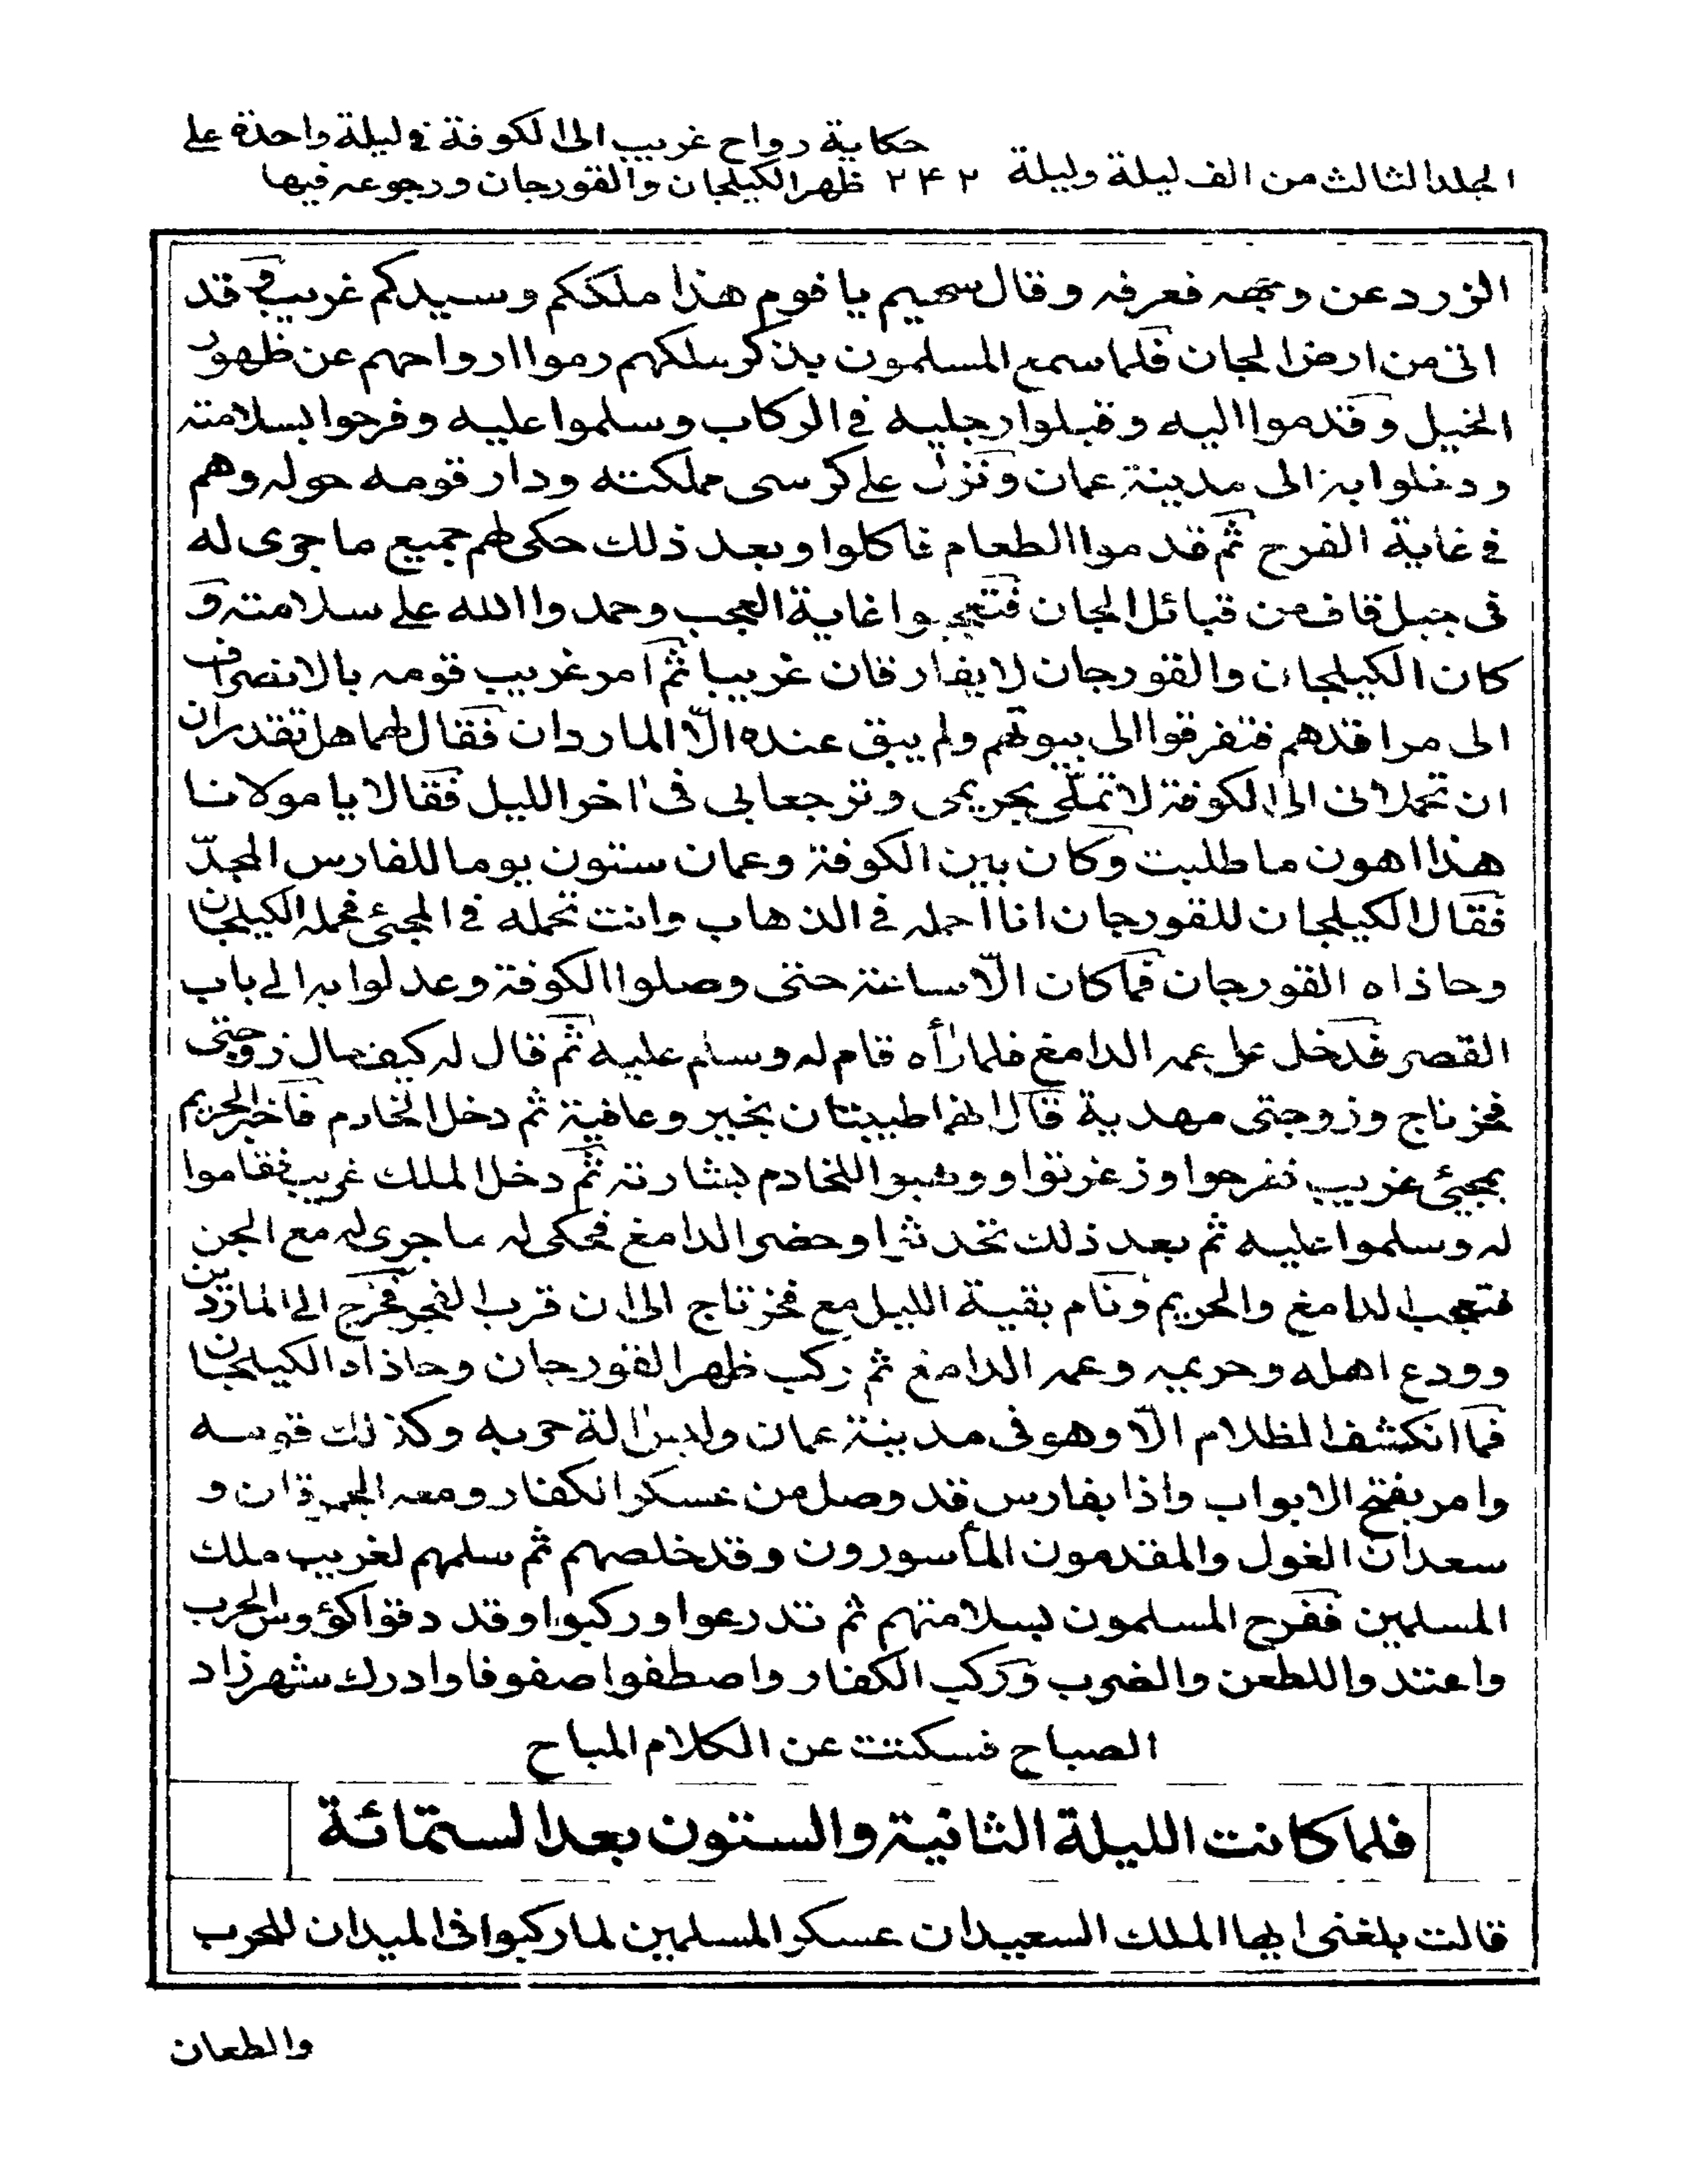 حكاية رواح غريب الى الكوفة في ليلة واحدة على
المجلد الثالث من الف ليلة وليلة ٢٤٢ ظهر الكيلجان والقورجان ورجوعه فيها
الزرد عن وجهه فعرفه وقال سحيم يا قوم هذا ملككم وسيدكم غريب قد
اتى من ارض الجان فلما سمع المسلمون بذكر ملكهم رموا ارواحهم عن ظهور
الخيل وقدموا اليه وقبلوا رجليه في الركاب وسلموا عليه وفرحوا بسلامته
ودخلوا به الى مدينة عمان ونزل على كرسى مملكته ودار قومه حوله وهم
في غاية الفرح ثم قدموا الطعام فاكلوا وبعد ذلك حكى لهم جميع ما جرى له
فى جبل قاف من قبائل الجان فتعجبوا غاية العجب وحمدوا الله على سلامته و
كان الكيلجان والقورجان لا يفارقان غريبا ثم امر غريب قومه بالانصراف
الى مراقدهم فتفرقوا الى بيوتهم ولم يبق عنده الّا الماردان فقال لهما هل تقدران
ان تحملانى الى الكوفة لاتملّى بحريمى وترجعا بى فى اخر الليل فقالا يا مولانا
هذا اهون ما طلبت وكان بين الكوفة وعمان ستون يوما للفارس المجدّ
فقال الكيلجان للقورجان انا احمله في الذهاب وانت تحمله في المجئ فحمله الكيلجان
وحاذاه القورجان فما كان الّا ساعة حتى وصلوا الكوفة وعدلوا به الى باب
القصر فدخل على عمه الدامغ فلما رأه قام له وسلم عليه ثم قال له كيف حال زوجتى
فخر تاج وزوجتى مهدية قال انهما طيبتان بخير وعافية ثم دخل الخادم فاخبر الحريم
بمجيئ غريب ففرحوا وزغرتوا ووهبوا للخادم بشارته ثم دخل الملك غريب فقاموا
له وسلموا عليه ثم بعد ذلك تحدثوا وحضر الدامغ فحكى له ما جرى له مع الجن
فتعجب الدامغ والحريم ونام بقية الليل مع فخر تاج الى ان قرب الفجر فخرج الى الماردين
وودع اهله وحريمه وعمه الدامغ ثم ركب ظهر القورجان وحاذاه الكيلجان
فما انكشف الظلام الّا وهو فى مدينة عمان ولبس الة حربه وكذلك قومه
وامر بفتح الابواب واذا بفارس قد وصل من عسكر الكفار ومعه الجمرقان و
سعدان الغول والمقدمون المأسورون وقد خلصهم ثم سلمهم لغريب ملك
المسلمين ففرح المسلمون بسلامتهم ثم تدرعوا وركبوا وقد دقوا كؤوس الحرب
واعتدوا للطعن والضرب وركب الكفار واصطفوا صفوفا وادرك شهرزاد
الصباح فسكتت عن الكلام المباح
فلما كانت الليلة الثانية والستون بعد الستمائة
قالت بلغنى ايها الملك السعيد ان عسكر المسلمين لما ركبوا فى الميدان للحرب
والطعان